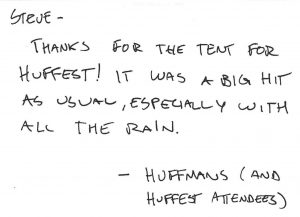 STEVE -
THANKS FOR THE TENT FOR
HUFFEST! IT WAS A BIG HIT
AS USUAL, ESPECIALLY WITH
ALL THE RAIN.
- HUFFMANS (AND
HUFFEST ATTENDEES)